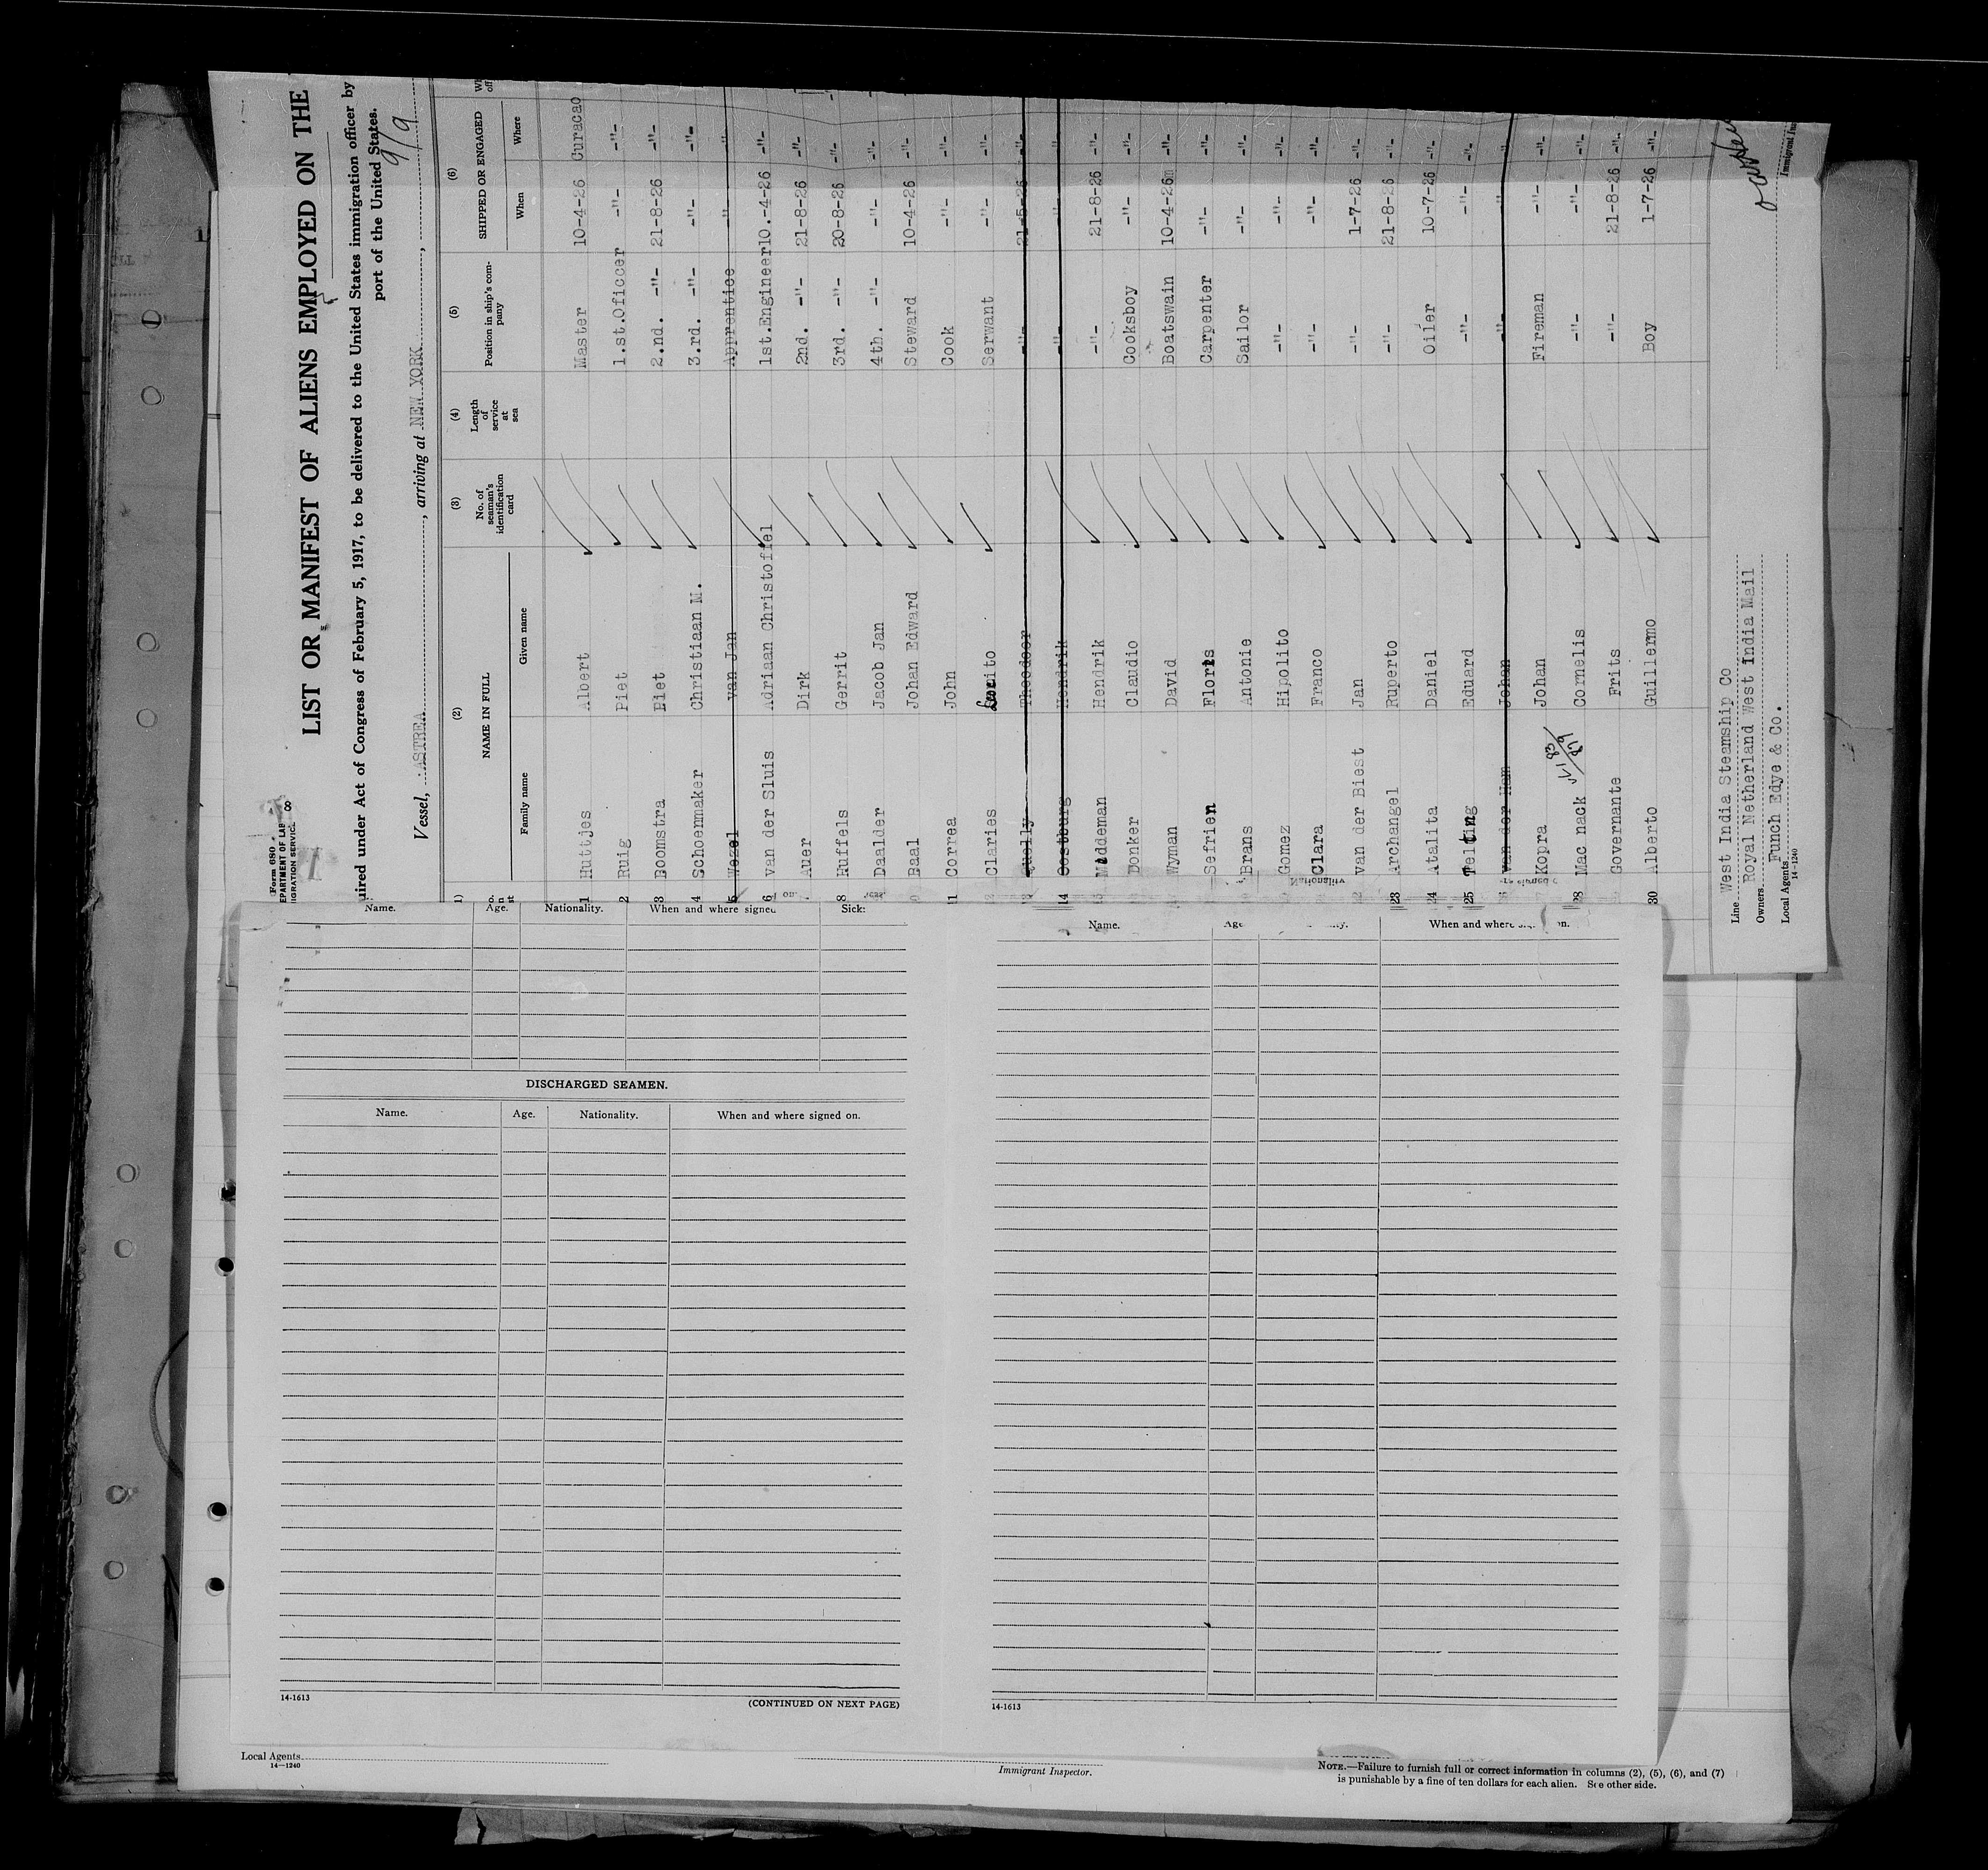 Form 680
LIST OR MANIFEST OF ALIENS EMPLOYED ON THE
uired under Act of Congress of February 5, 1917, to be delivered to the United States immigration officer by
port of the United States.
9/9
Vessel, ASTREA, arriving at NEW YORK,
(2) (3) (4) (5) (6)
NAME IN FULL No. of seaman's identification card Length of service at sea Position in ship's company SHIPPED OR ENGAGED
Family name Given name When Where
1 Huttjes Albert Master 10-4-26 Curacao
2 Ruig Piet 1.st.Oficcer -"- -"-
3 Boomstra Piet 2.nd. -"- 21-8-26 -"-
4 Schoenmaker Christiaan M. 3.rd. -"- -"- -"-
5 Wezel van Jan Apprentice -"- -"-
6 van der Sluis Adriaan Christoffel 1st.Engineer 10.-4-26 -"-
Auer Dirk 2nd. -"- 21-8-26 -"-
8 Huffels Gerrit 3rd. -"- 20-8-26 -"-
Daalder Jacob Jan 4th. -"- -"- -"-
Baal Johan Edward Steward 10-4-26 -"-
Correa John Cook -"- -"-
Claries Serwant -"- -"-
Theodoor -"- 21-5-26 -"-
14 Oostburg Hendrik -"- -"- "
Middeman Hendrik -"- 21-8-26 -"-
Donker Claudio Cooksboy -"- -"-
Wyman David Boatswain 10-4-26 -"-
Sefrien Floris Carpenter -"- -"-
Brans Antonie Sailor -"- -"-
Gomez Hipolito -"- -"- -"-
Clara Franco -"- -"- -"-
van der Biest Jan -"- 1-7-26 -"-
23 Archangel Ruperto -"- 21-8-26 -"-
24 Atalita Daniel Oiler 10-7-26 -"-
25 Telting Eduard -"- -"- -"-
van der Ham Johan -"- " "
Kopra Johan Fireman -"- -"-
28 Mac nack Cornelis -"- -"- -"-
Governante Frits -"- 21-8-26 -"-
30 Alberto Guillermo Boy 1-7-26 -"-
Line West India Steamship Co
Owners Royal Netherland West India Mail
Local Agents Funch Edye & Co.
14-1240
Name. Age. Nationality. When and where signed Sick:
DISCHARGED SEAMEN.
Name. Age. Nationality. When and where signed on.
14-1613 (CONTINUED ON NEXT PAGE)
Name. When and where
14-1613
Local Agents
14—1240
Immigrant Inspector.
NOTE.—Failure to furnish full or correct information in columns (2), (5), (6), and (7)
is punishable by a fine of ten dollars for each alien. See other side.